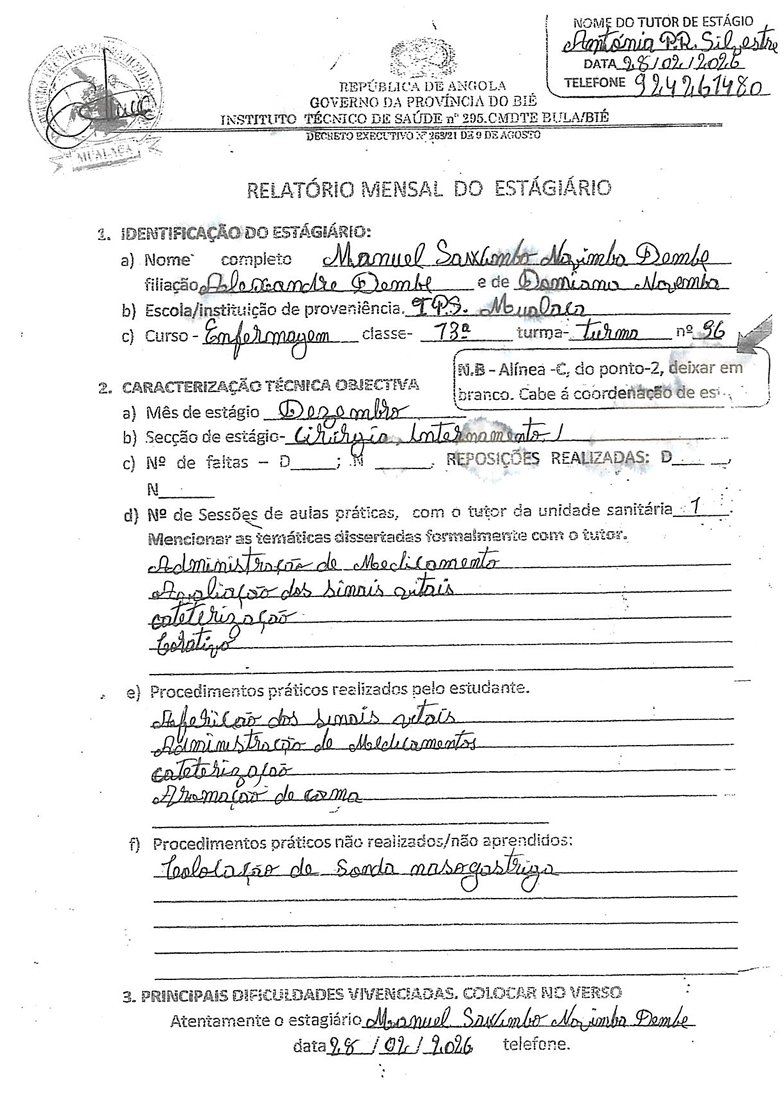 NOME DO TUTOR DE ESTÁGIO
Antónia P.R. Silvestre
DATA 28/02/2026
TELEFONE 924261480
REPÚBLICA DE ANGOLA
GOVERNO DA PROVÍNCIA DO BIÉ
INSTITUTO TÉCNICO DE SAÚDE nº 295.CMDTE BULA/BIÉ
DECRETO EXECUTIVO Nº 263/21 DE 9 DE AGOSTO
MUALACA
RELATÓRIO MENSAL DO ESTÁGIÁRIO
1. IDENTIFICAÇÃO DO ESTÁGIÁRIO:
a) Nome completo Manuel Dembe
filiação Alexandre Dembe e de Damiana
b) Escola/instituição de proveniência. Mualaca
c) Curso - Enfermagem classe- 13ª turma- turma nº 36
N.B - Alínea -C, do ponto-2, deixar em
branco. Cabe á coordenação de es
2. CARACTERIZAÇÃO TÉCNICA OBJECTIVA
a) Mês de estágio Dezembro
b) Secção de estágio- Cirúrgia, Internamento
c) Nº de faltas – D_____; N ______. REPOSIÇÕES REALIZADAS: D_____,
N______
d) Nº de Sessões de aulas práticas, com o tutor da unidade sanitária 1.
Mencionar as temáticas dissertadas formalmente com o tutor.
Administração de Medicamento
Avaliação dos sinais vitais
cateterização
e) Procedimentos práticos realizados pelo estudante.
Aferição dos sinais vitais
Administração de Medicamentos
cateterização
de cama
f) Procedimentos práticos não realizados/não aprendidos:
Colocação de Sonda nasogastriga
3. PRINCIPAIS DIFICULDADES VIVENCIADAS. COLOCAR NO VERSO
Atentamente o estagiário Manuel Dembe
data 28/02/2026 telefone.